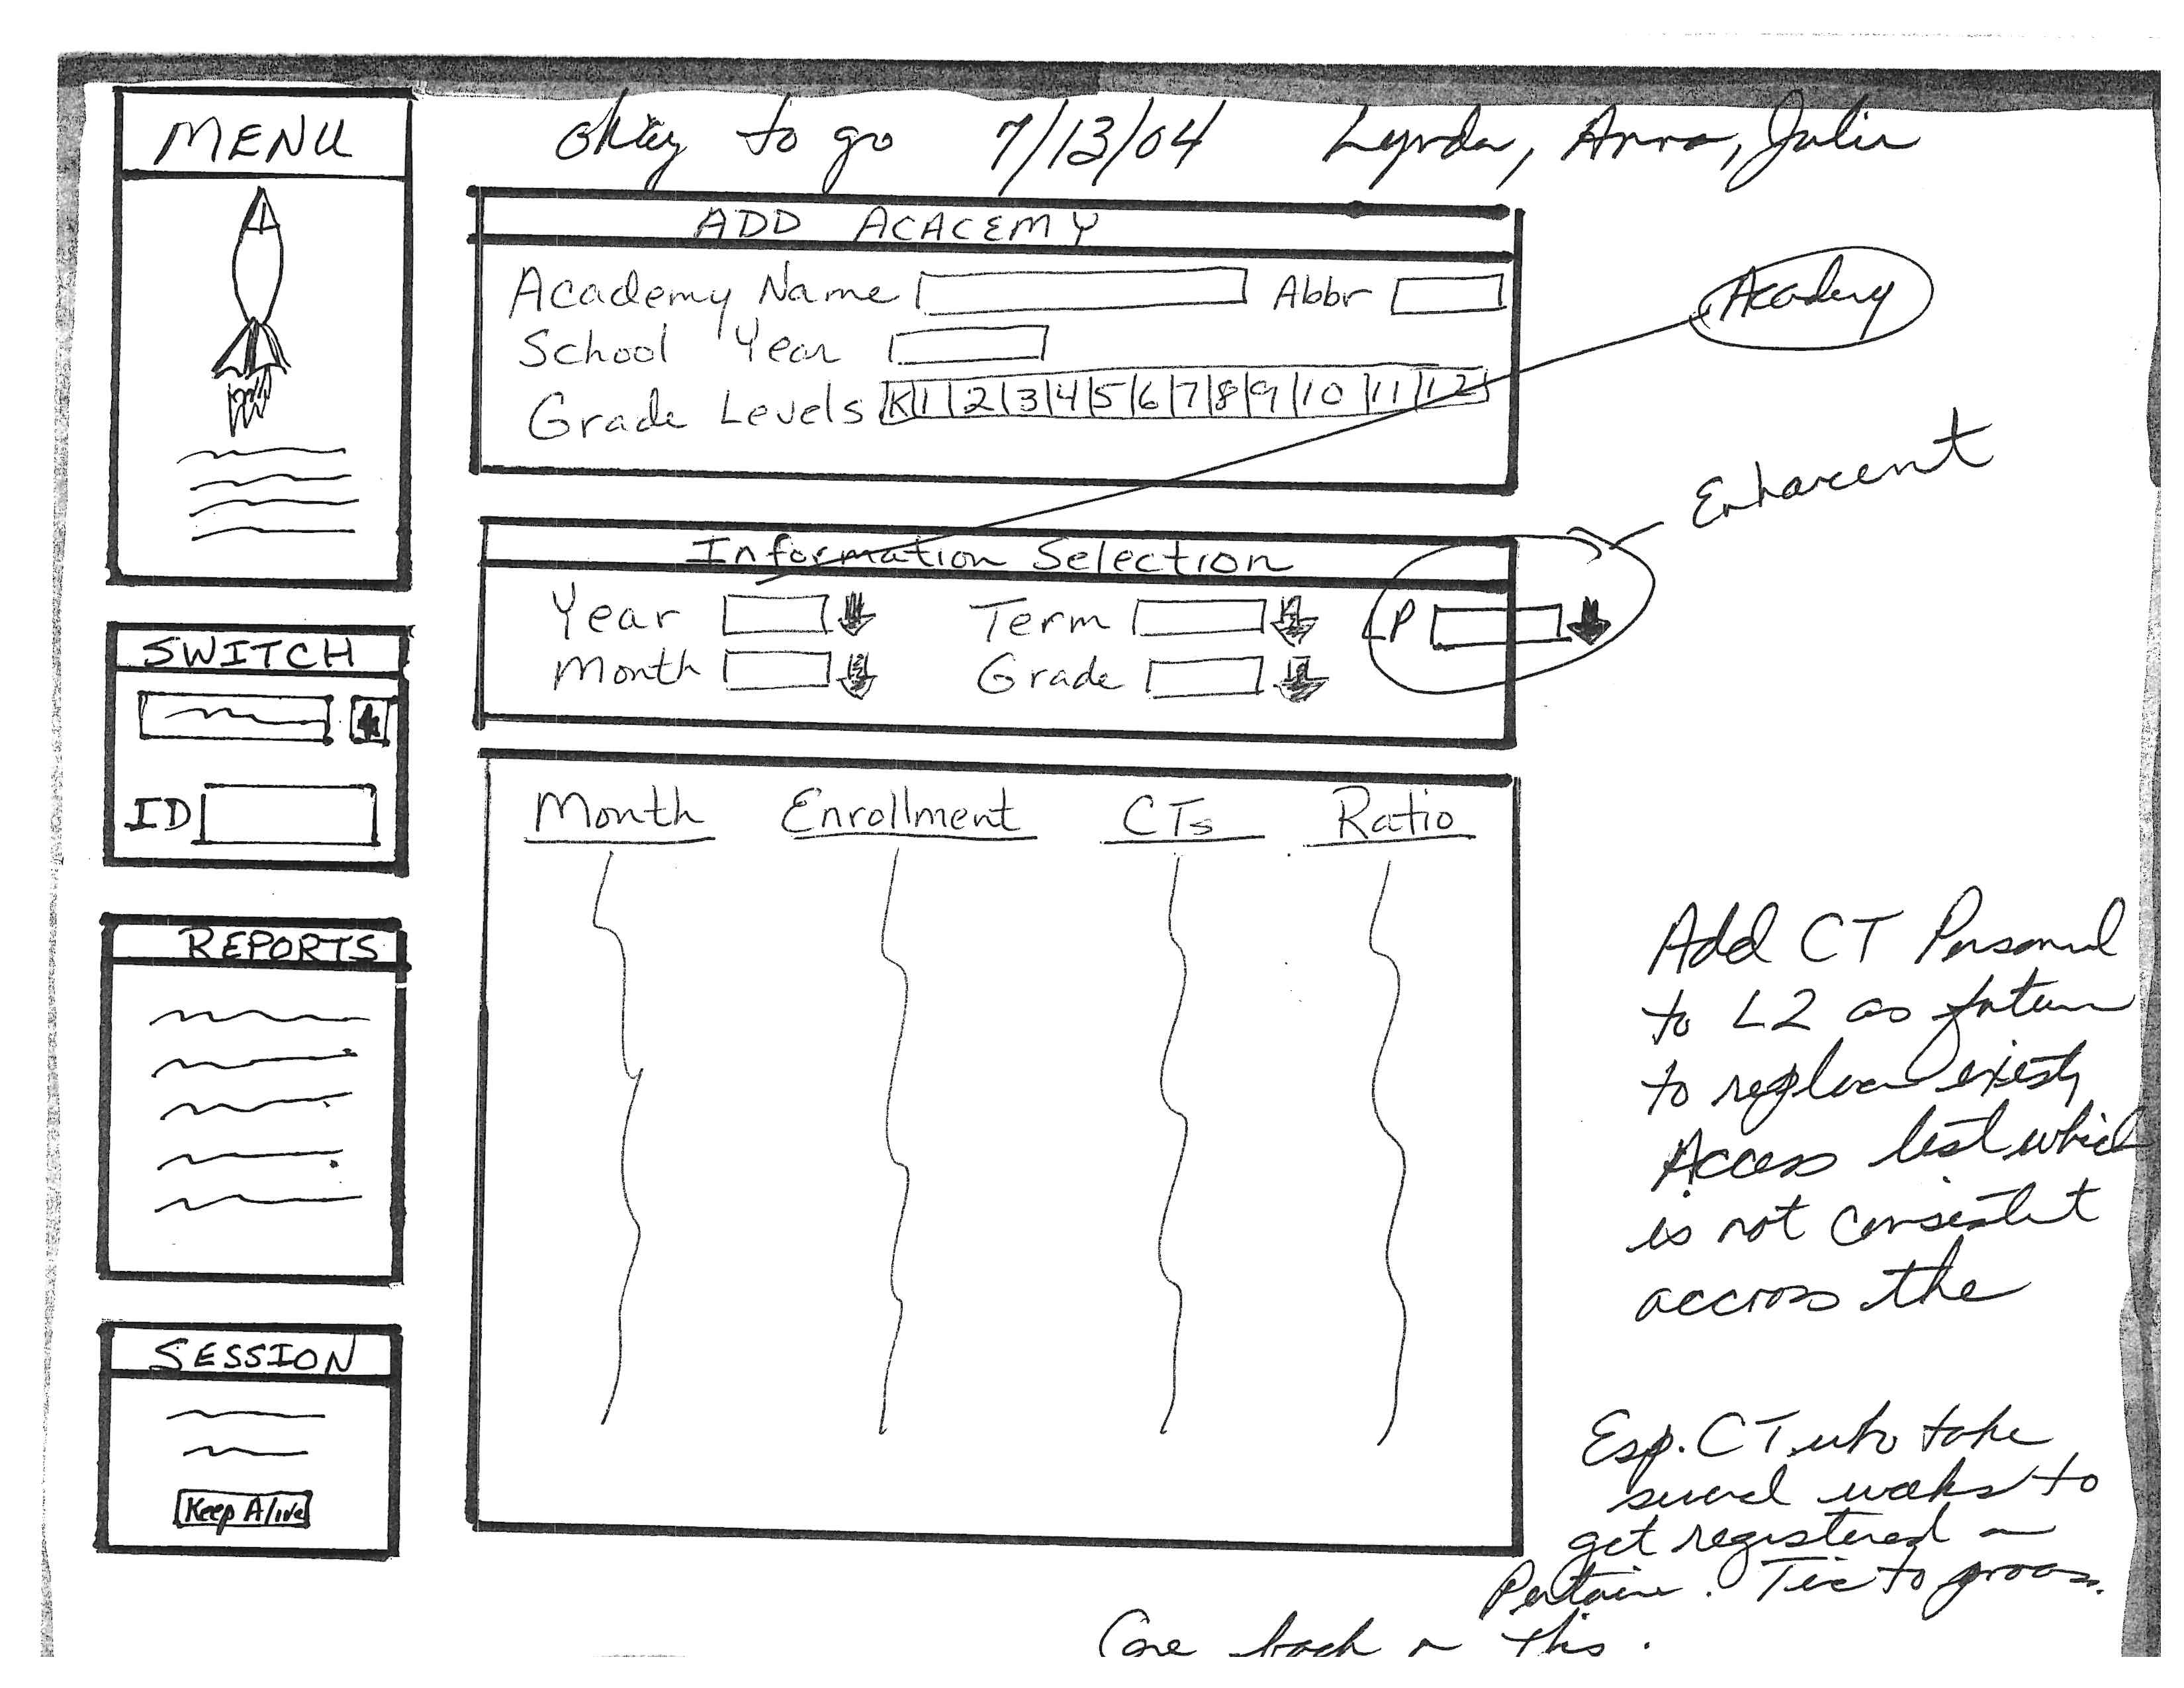 okay to go 7/13/04 Lynda, Anna, Julie
MENU
ADD ACACEMY
Academy Name Abbr
School Year
Grade Levels K 1 2 3 4 5 6 7 8 9 10 11 12
Academy
Enhancent
Information Selection
Year Term LP
Month Grade
SWITCH
ID
REPORTS
SESSION
Keep Alive
Month Enrollment CTs Ratio
Add CT Personnel
to L2 as future
to replace existing
Access list which
is not consistent
accross the
Esp. CT who take
several weeks to
get registered in
Tie to
back on this.